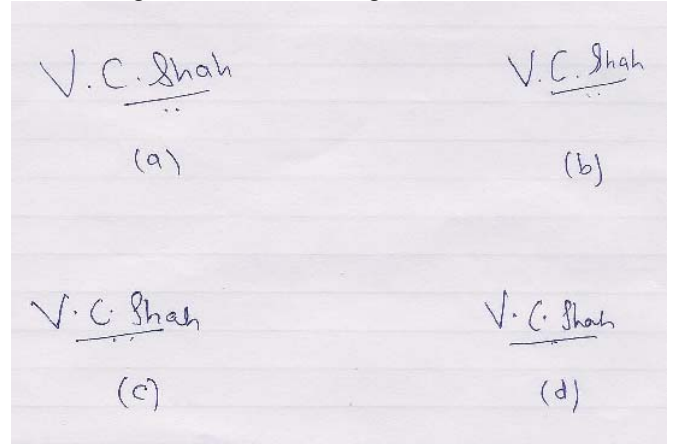 V. C. Shah
V. C. Shah
(a)
(b)
V. C. Shah
V. C. Shah
(c)
(d)